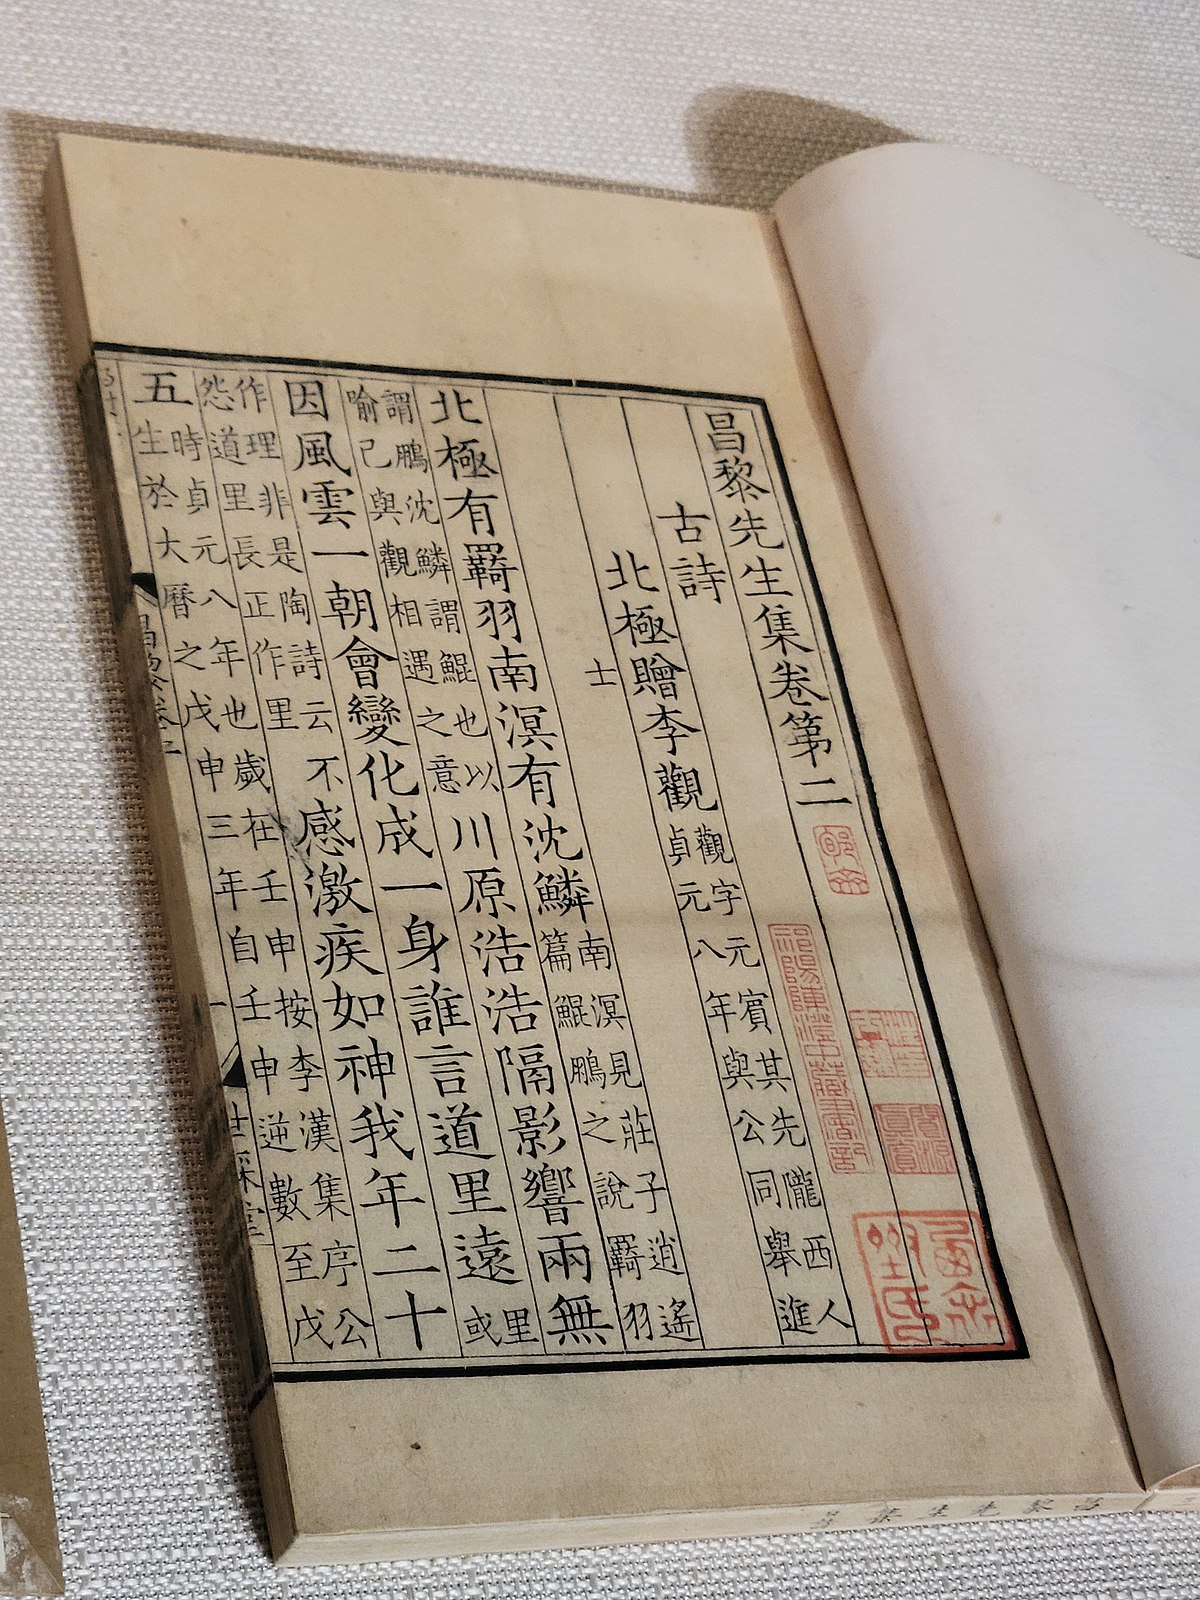 昌黎先生集卷第二
古詩
北極贈李觀
觀字元賓其先隴西人
貞元八年與公同舉進
士
北極有羈羽南溟有沈鱗
南溟見莊子逍遙
篇鯤鵬之說羈羽
謂鵬沈鱗謂鯤也以
喻己與觀相遇之意
川原浩浩隔影響兩無
因風雲一朝會變化成一身誰言道里遠
里
或
作理非是陶詩云不
怨道里長正作里
感激疾如神我年二十
五
時貞元八年也歲在壬申按李漢集序公
生於大曆之戊申三年自壬申逆數至戊
昌黎卷二
祁陽陳澄中藏書記
昌黎先生集